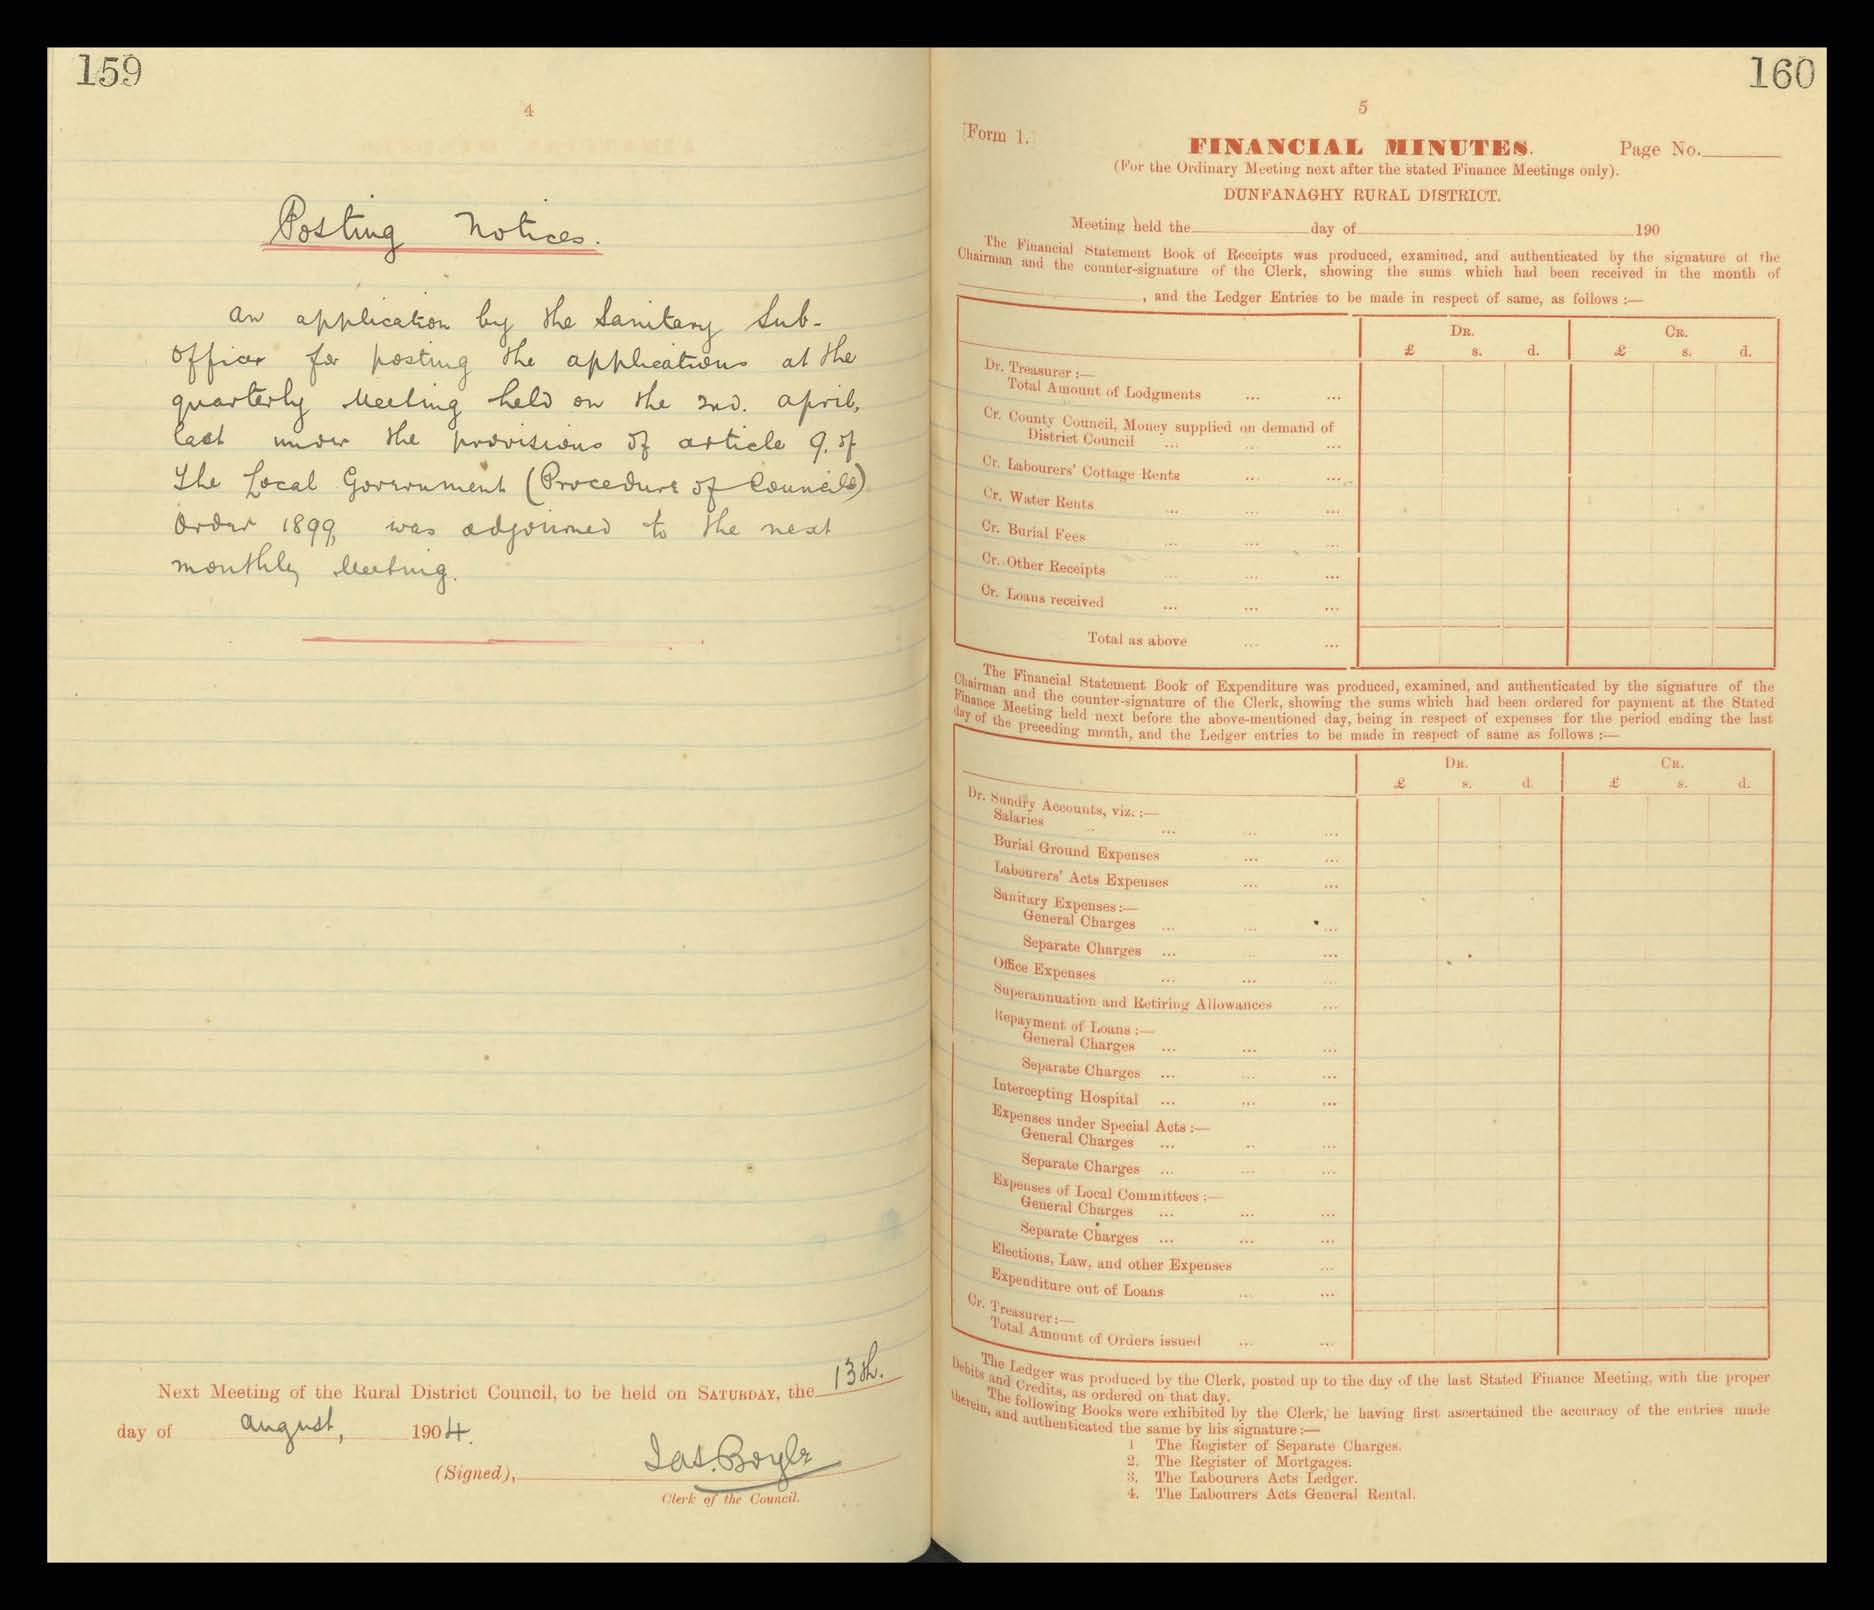 159
4
Posting Notices.
An application by the Sanitary Sub-
Officer for posting the applications at the
quarterly Meeting held on the 2nd. April,
last under the provisions of article 9. of
The Local Government (Procedure of Councils)
Order 1899, was adjourned to the next
monthly Meeting.
Next Meeting of the Rural District Council, to be held on SATURDAY, the 13th.
day of August, 1904.
(Signed), Jas. Boyle
Clerk of the Council.
160
5
[Form 1.]
FINANCIAL MINUTES. Page No.
(For the Ordinary Meeting next after the stated Finance Meetings only).
DUNFANAGHY RURAL DISTRICT.
Meeting held the day of 190
The Financial Statement Book of Receipts was produced, examined, and authenticated by the signature of the
Chairman and the counter-signature of the Clerk, showing the sums which had been received in the month of
, and the Ledger Entries to be made in respect of same, as follows :—
DR. CR.
£ s. d. £ s. d.
Dr. Treasurer :—
Total Amount of Lodgments ... ...
Cr. County Council, Money supplied on demand of
District Council ... ... ...
Cr. Labourers' Cottage Rents ... ...
Cr. Water Rents ... ... ...
Cr. Burial Fees ... ... ...
Cr. Other Receipts ... ... ...
Cr. Loans received ... ... ...
Total as above ... ...
The Financial Statement Book of Expenditure was produced, examined, and authenticated by the signature of the
Chairman and the counter-signature of the Clerk, showing the sums which had been ordered for payment at the Stated
Finance Meeting held next before the above-mentioned day, being in respect of expenses for the period ending the last
day of the preceding month, and the Ledger entries to be made in respect of same as follows :—
DR. CR.
£ s. d. £ s. d.
Dr. Sundry Accounts, viz. :—
Salaries ... ... ... ...
Burial Ground Expenses ... ...
Labourers' Acts Expenses ... ...
Sanitary Expenses :—
General Charges ... ... ...
Separate Charges ... ... ...
Office Expenses ... ... ...
Superannuation and Retiring Allowances ...
Repayment of Loans :—
General Charges ... ... ...
Separate Charges ... ... ...
Intercepting Hospital ... ... ...
Expenses under Special Acts :—
General Charges ... ... ...
Separate Charges ... ... ...
Expenses of Local Committees :—
General Charges ... ... ...
Separate Charges ... ... ...
Elections, Law, and other Expenses ...
Expenditure out of Loans ... ...
Cr. Treasurer :—
Total Amount of Orders issued ... ...
The Ledger was produced by the Clerk, posted up to the day of the last Stated Finance Meeting, with the proper
Debits and Credits, as ordered on that day.
The following Books were exhibited by the Clerk, he having first ascertained the accuracy of the entries made
therein, and authenticated the same by his signature :—
1 The Register of Separate Charges.
2. The Register of Mortgages.
3. The Labourers Acts Ledger.
4. The Labourers Acts General Rental.